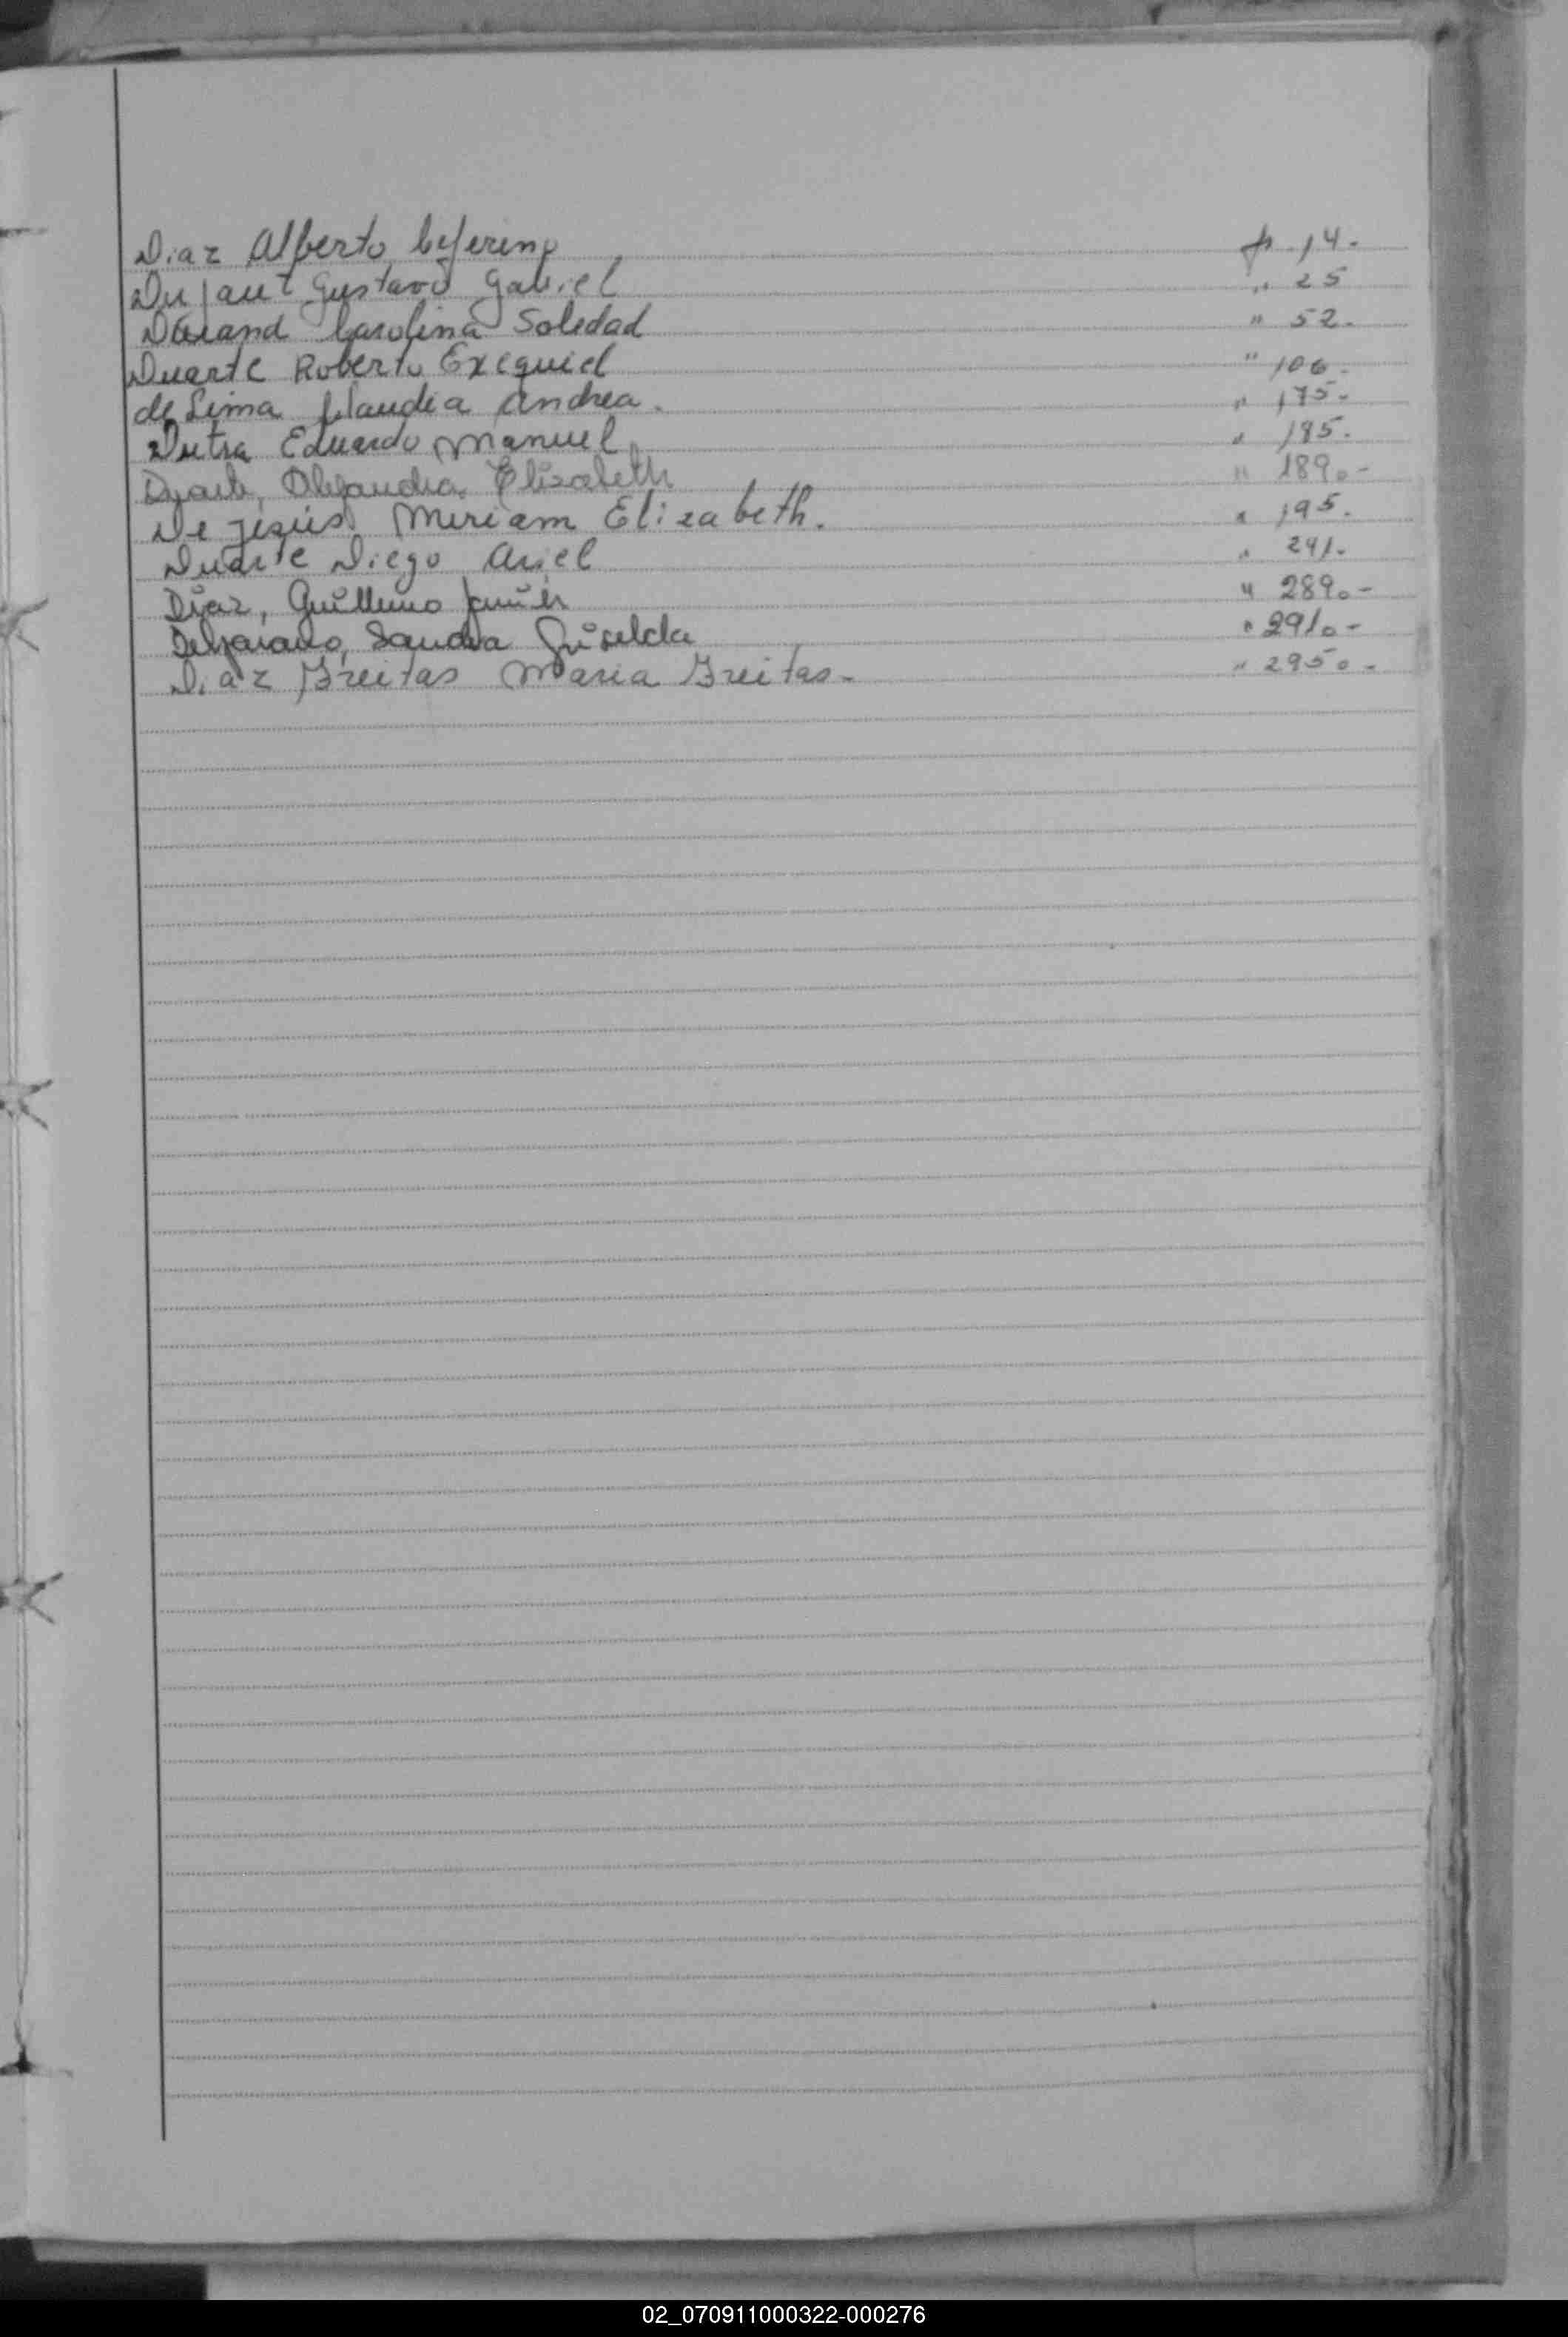 Diaz Alberto Ceferino f 14.-
Dujaut Gustavo Gabriel " 25
Durand Carolina Soledad " 52.-
Duarte Roberto Exequiel " 106.-
de Lima Claudia Andrea. " 175.-
Dutra Eduardo Manuel " 185.
Duarte, Alejandra Elizabeth " 189.-
De Jesús Miriam Elizabeth. " 195.
Duarte Diego Ariel " 241.
Díaz, Guillermo Javier " 289.-
Sandra Griselda " 291.-
Diaz Freitas Maria Freitas.- " 295.-
02_070911000322-000276